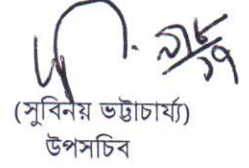 (সুবিনয় ভট্টাচার্য্য)
উপসচিব